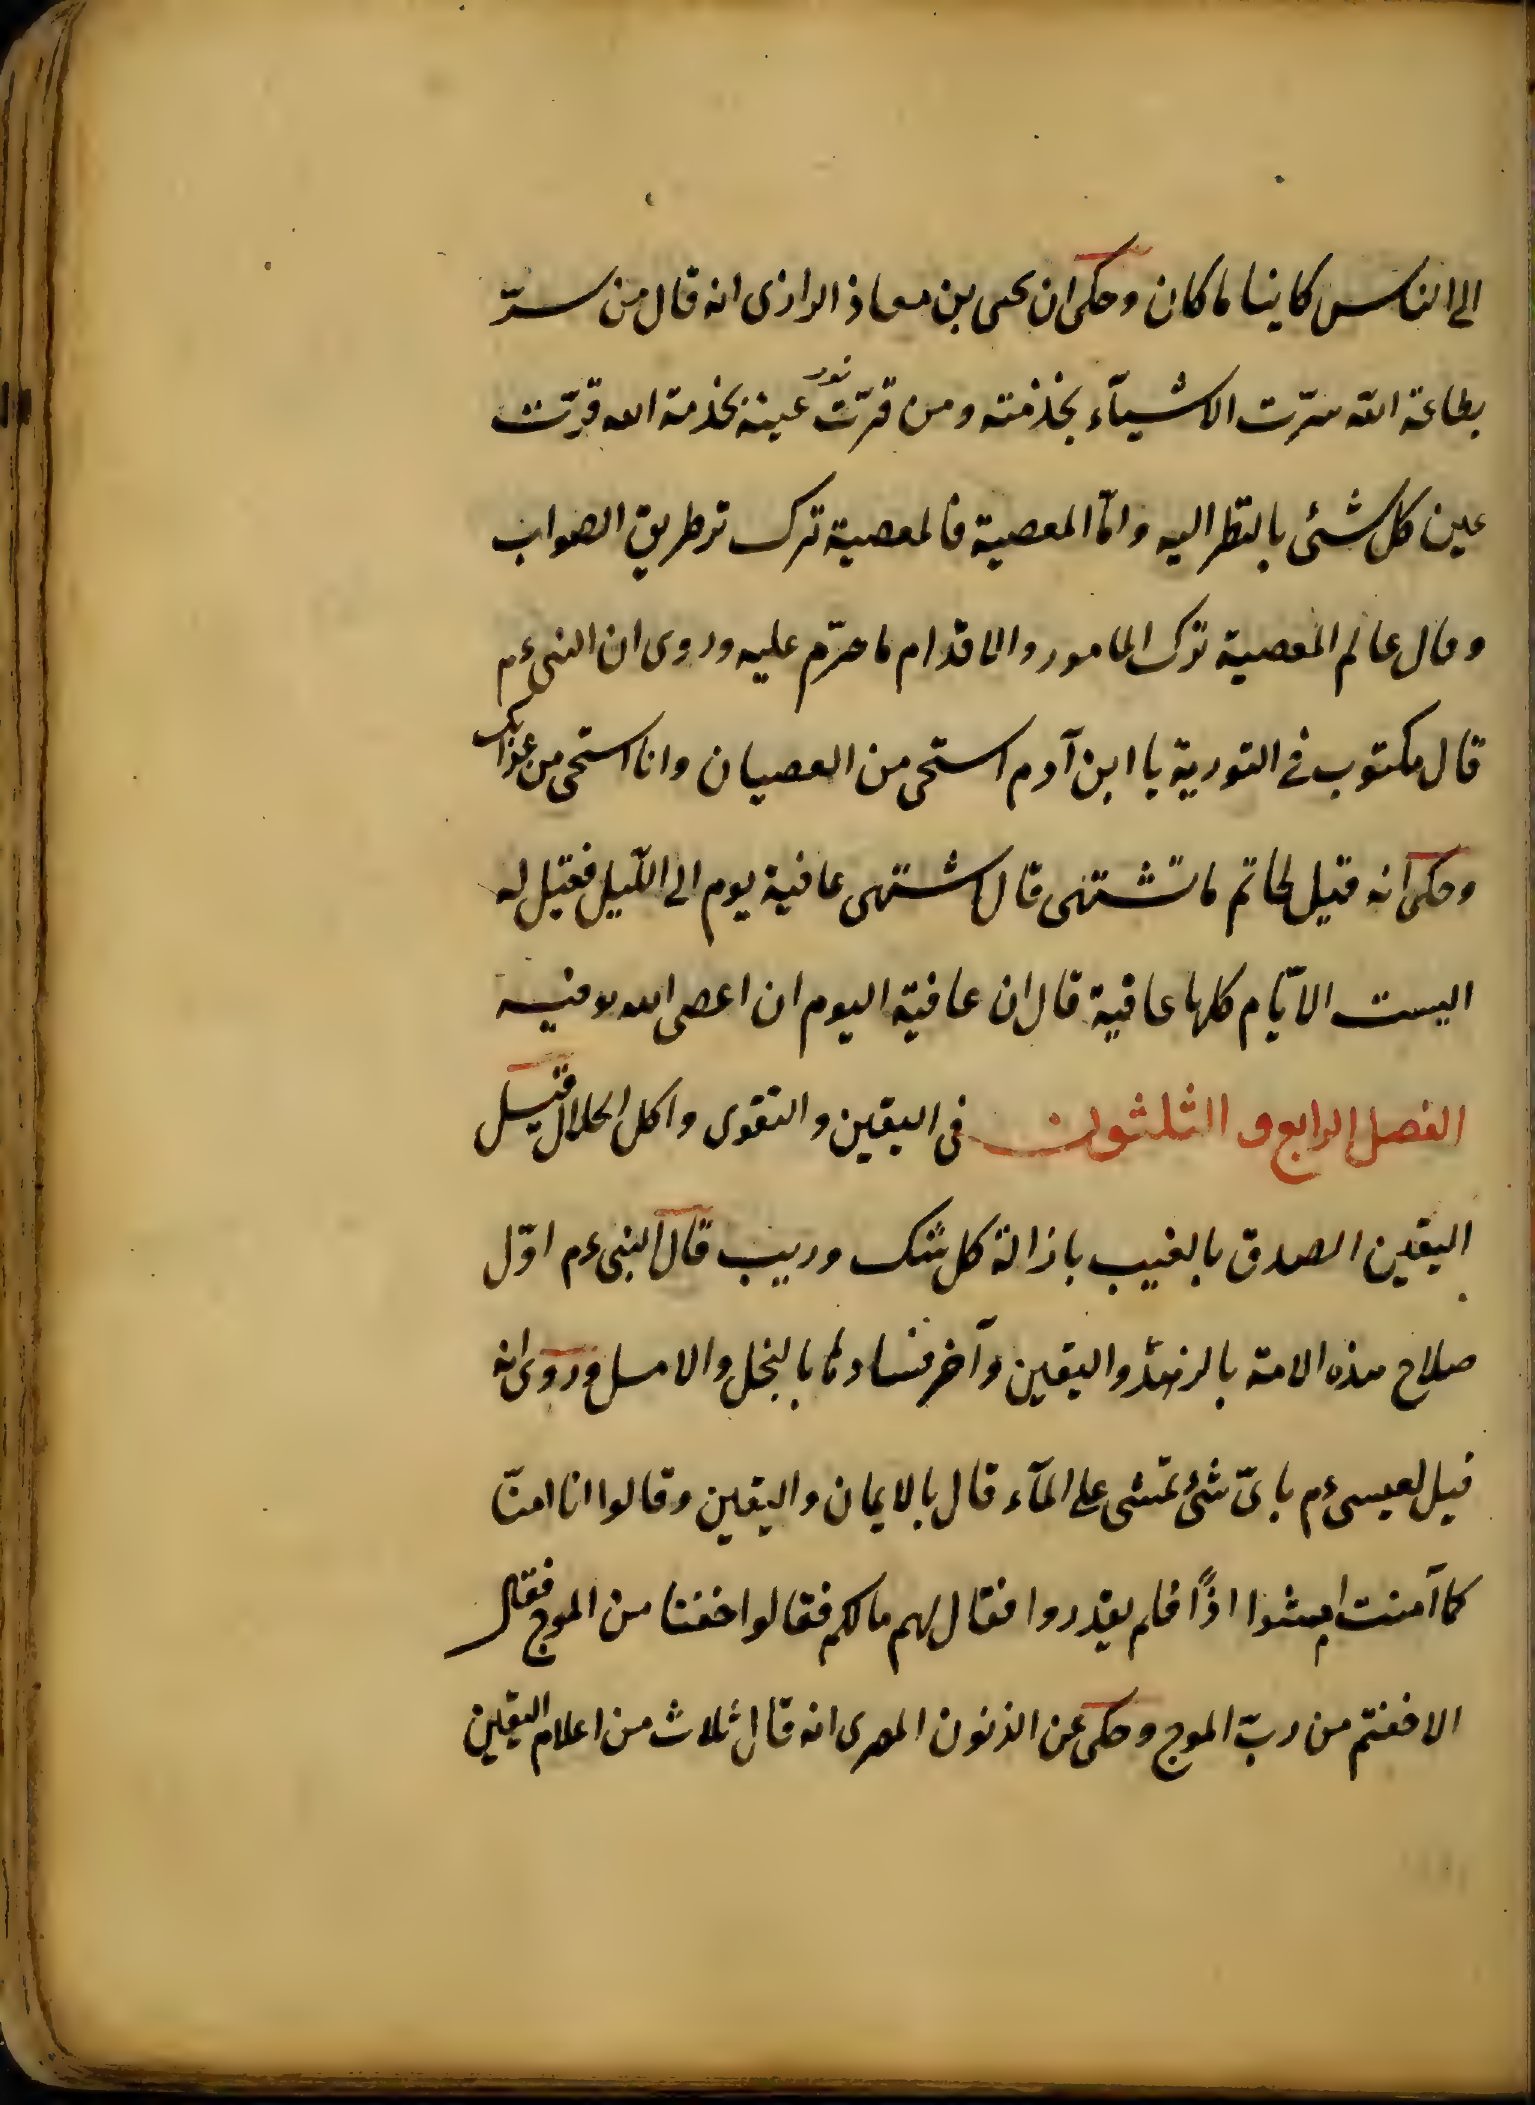 الى الناس كاينا ما كان وحكى ان يحيى بن معاذ الرازى انه قال من سرّ
بطاعة الله سرّت الاشيآء بخدمته ومن قرّت نور عينه بخدمة الله قرّت
عين كل شئى بالنظر اليه وامّا المعصية فالمعصية ترك تو طريق الصواب
وقال عالم المعصية ترك المامور والاقدام ما حرّم عليه وروى ان النبى ءم
قال مكتوب فى التورية يا ابن آدم استحى من العصيان وانا استحى من عذابك
وحكى انه قيل لحاتم ما تشتهى قال اشتهى عافية يوم الى اللّيل فقيل له
اليست الايّام كلها عافية قال ان عافية اليوم ان اعصى الله فيه
الفصل الرابع و الثلثون فى اليقين والتقوى واكل الحلال قيل
اليقين الصدق بالغيب بازالة كل شك وريب قال النبى ءم اوّل
صلاح هذه الامة بالزهد واليقين وآخر فسادها بالبخل والامل وروى انه
قيل لعيسى ءم باىّ شئ تمشى على المآء قال بالايمان واليقين وقالوا انا امنّا
كما آمنت امشوا اذًا فلم يقدروا فقال لهم مالكم فقالوا خفنا من الموج فقال
الا خفتم من ربّ الموج وحكى عن الذنون المصرى انه قال ثلاث من اعلام اليقين